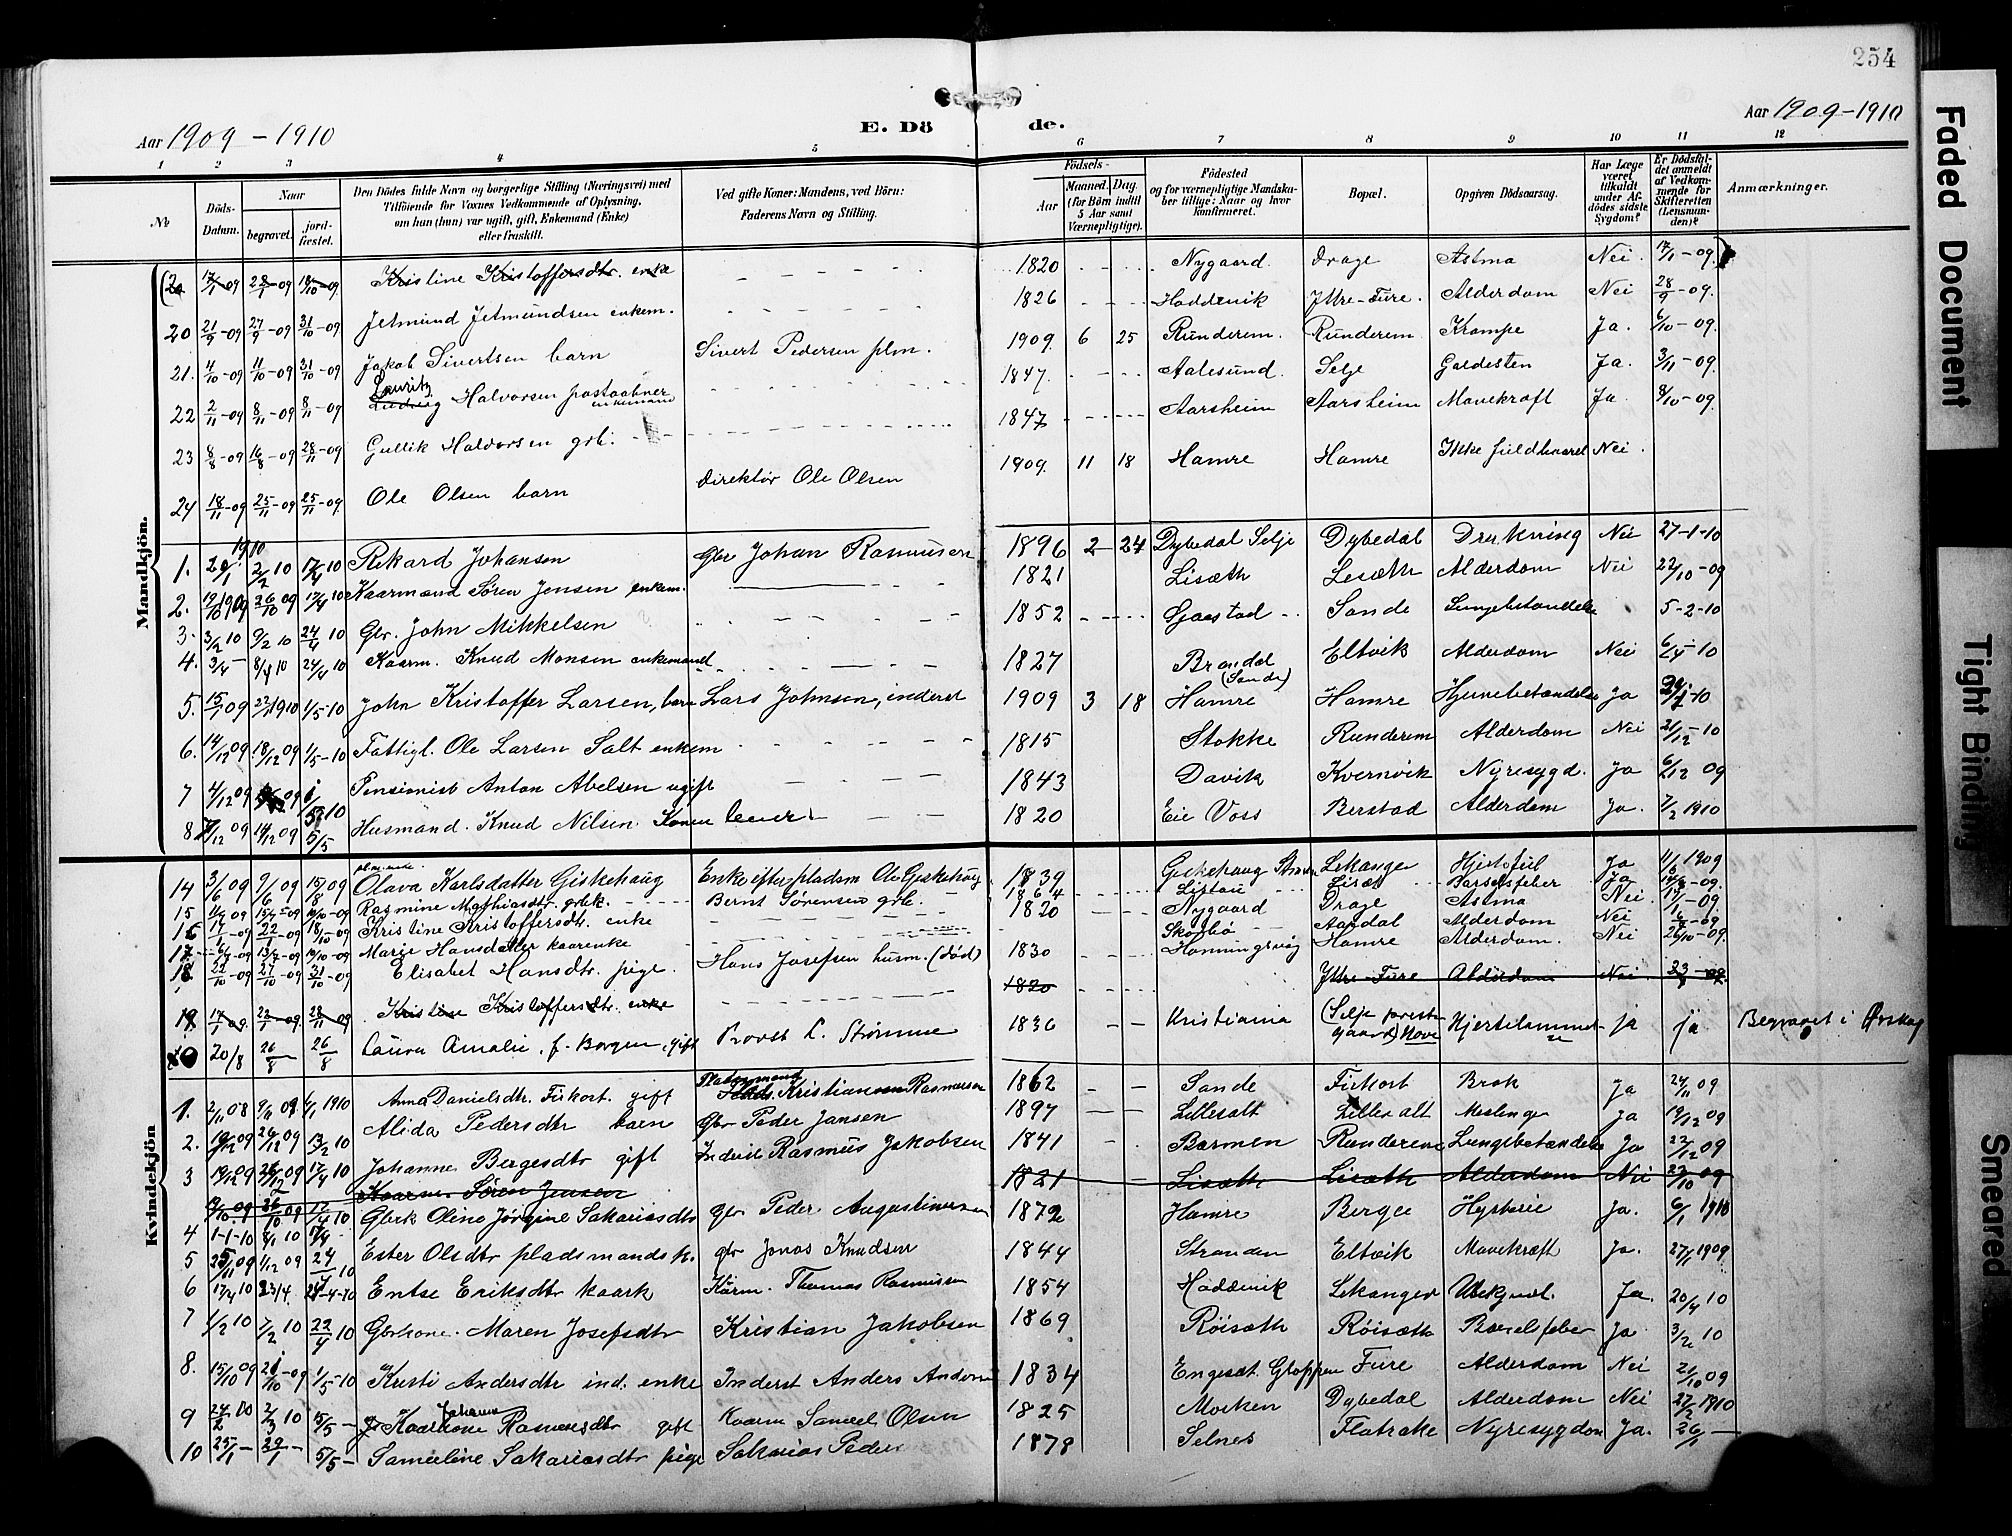 254
Aar 1909 - 1910 E. Dö de. Aar 1909-1910
1 2 3 4 5 6 7 8 9 10 11 12
№ Döds-Datum. Naar begravet. jordfæstet. Den Dödes fulde Navn og borgerlige Stilling (Næringsvei) med Tilföiende for Voxnes Vedkommende af Oplysning, om han (hun) var ugift, gift, Enkemand (Enke) eller fraskilt. Ved gifte Koner: Mandens, ved Börn: Faderens Navn og Stilling. Födsels- Aar Maaned. Dag. (for Börn indtil 5 Aar samt Værnepligtige). Födested og for værnepligtige Mandskaber tillige: Naar og hvor konfirmeret. Bopæl. Opgiven Dödsaarsag. Har Læge været tilkaldt under Afdödes sidste Sygdom? Er Dödsfaldet anmeldt af Vedkommende for Skifteretten (Lensmanden)? Anmærkninger.
Mandkjön.
17/1-09 Kristine Kristoffersdtr. enke 1820 Nygaard Drage Astma Nei. 17/1-09
20 21/9-09 27/9-09 31/10-09 Jetmund Jetmundsen enkem. 1826 Hoddevik Ytre-Fure. Alderdom Nei 28/9-09.
21. 4/10-09 11/10-09 31/10-09 Jakob Sivertsen barn Sivert Pedersen plm. 1909 6 25 Runderem. Runderem Krampe Ja. 6/10-09.
22 2/11-09 8/11-09 8/11-09 Lauritz Ludvig Halvorsen postaabner enkemand 1847. Aalesund. Selje Galdesten Ja. 3/11-09
23 8/8-09 16/8-09 28/11-09 Gullik Halvorsen grb. 1847 Aarsheim Aarsheim Mavekræft Ja. 8/10-09.
24 18/11-09 25/11-09 25/11-09. Ole Olsen barn direktör Ole Olsen 1909. 11 18 Hamre Hamre Ikke fuldbaaret Nei.
1910
1. 20/1 2/2 10 17/4 10 Rikard Johansen Gbr Johan Rasmussen 1896 2 24 Dybedal Selje Dybedal Drukning Nei 27-1-10
2. 19/10 1909 26/10 09 17/4 10 Kaarmand Søren Jensen enkem. 1821 Lisæth Lesæth Alderdom Nei 22/10-09
3. 3/2 10 9/2 10 24/4 10 Gbr. John Mikkelsen 1852 Gjaastad Sande Lungebetændelse 5-2-10
4. 3/4- 8/4 10 24/4 10 Kaarm. Knud Monsen enkemand 1827 Brandal (Sande) Eltvik Alderdom Nei 6/4-10
5. 15/1 09 22/1 1910 1/5-10 John Kristoffer Larsen, barn Lars Johnsen, inderst 1909 3 18 Hamre Hamre Hjernebetændelse Ja
6. 14/12 09 18/12 09 1/5-10 Fattigl. Ole Larsen Salt enkem 1815 Stokke Runderem Alderdom Nei 21/12-10
7 4/12 09 Pensionist Anton Abelsen ugift 1843 Davik Kvernvik Nyresygd. Ja 6/12 09
8 7/12 09 14/12 09 5/5 Husmand. Knud Nilsen. Konen lever 1820 Eie Voss Berstad Alderdom Ja. 7/2 1910
Kvindekjön
14 3/6 09 9/6 09 15/8 09 Olava Karlsdatter Giskehaug Enke efter pladsm Ole Giskehaug 1839 Giskehaug Lekanger Hjertefeil Ja 11/6 1909
15 Rasmine Mathiasdtr. grbk. Bernt Sørensen grb. 1864 Lisæt Barselsfeber Ja
16 17/1-09 22/1-09 18/10-09 Kristine Kristoffersdtr. enke 1820 Nygaard Drage Astma Nei 17/1-09
17 Marie Hansdatter kaarenke Skorbø Aardal Alderdom Nei
18 22/10-09 27/10-09 31/10-09 Elisabet Hansdtr. pige. Hans Josefsen husm. (död) 1830 Honningsvåg Hamre Alderdom. Nei 26/10-09.
19 17/1-09. 22/1-09. 28/11-09 Kristine Kristoffersdtr. enke 1820 Ytre-Fure Alderdom Nei 23-09.
20 20/8 26/8 26/8 Laura Amalie, f. Borgen, gift Provst L. Strømme 1836 Kristiania (Selje prestegaard) Hove Hjertelammelse ja ja Begravet i Ørskog
1. 2/11 08 9/11 08 6/1 1910 Anna Danielsdtr. Fiskort. gift Pladsmand Kristian Rasmussen 1862 Sande Fiskort Brok Ja 24/11 09
2. 19/12 09 26/12 09 13/2 10 Alida Pedersdtr barn Gbr Peder Jansen 1897 Lillesalt Lillesalt Meslinger Ja 19/12 09
3 19/12 09 26/12 09 17/4 10 Johanne Bergesdtr gift Inderst Rasmus Jakobsen 1841 Barmen Runderem Lungebetændelse Ja 27/12 09
19/10 09 26/10 09 17/4 10 Kaarm. Søren Jensen 1821 Lisæth Lisæth Alderdom Nei 22/10 09
4 1-1-10 8/1 10 17/4 Gbrk Oline Jørgine Sakariasdtr gbr Peder Augustinsen 1872 Hamre Berge Hysterie Ja. 6/1 1910
5 25/11 09 1/12 09 24/4 10 Ester Olsdtr pladsmandsk. gbr Jonas Knudsen 1844 Stranden Eltvik Mavekræft Ja. 27/1 1909
6 17/4 10 23/4. 24-4-10 Entse Eriksdtr kaark Kårm. Thomas Rasmussen 1854 Hoddevik Lekanger Ubekjendt. Ja. 20/4 10
7 1/2 10 7/2 10 22/4 10 Gbrkone. Maren Josefsdtr Kristian Jakobsen 1869 Röisæth Röisæth Barselsfeber Ja. 3/2 10
8. 15/10 09 21/10-09 1/5-10 Kristi Andersdtr ind. enke Inderst Anders Anderse 1834 Engesæt Gloppen Fure Alderdom Nei 2/10 09
9 24/2 10 2/3 10 15/5- Kaarkone Johanne Rasmusdtr gift Kaarm Samuel Olsen 1825 Morken Dybedal Alderdom Nei 27/2 1910
10 25/1- 29/1- 5/5- Sameline Sakariasdtr pige Sakarias Peders 1878 Selnes Flatrake Nyresygdom Ja. 26/1-
Faded Document
Tight Binding
Smeared